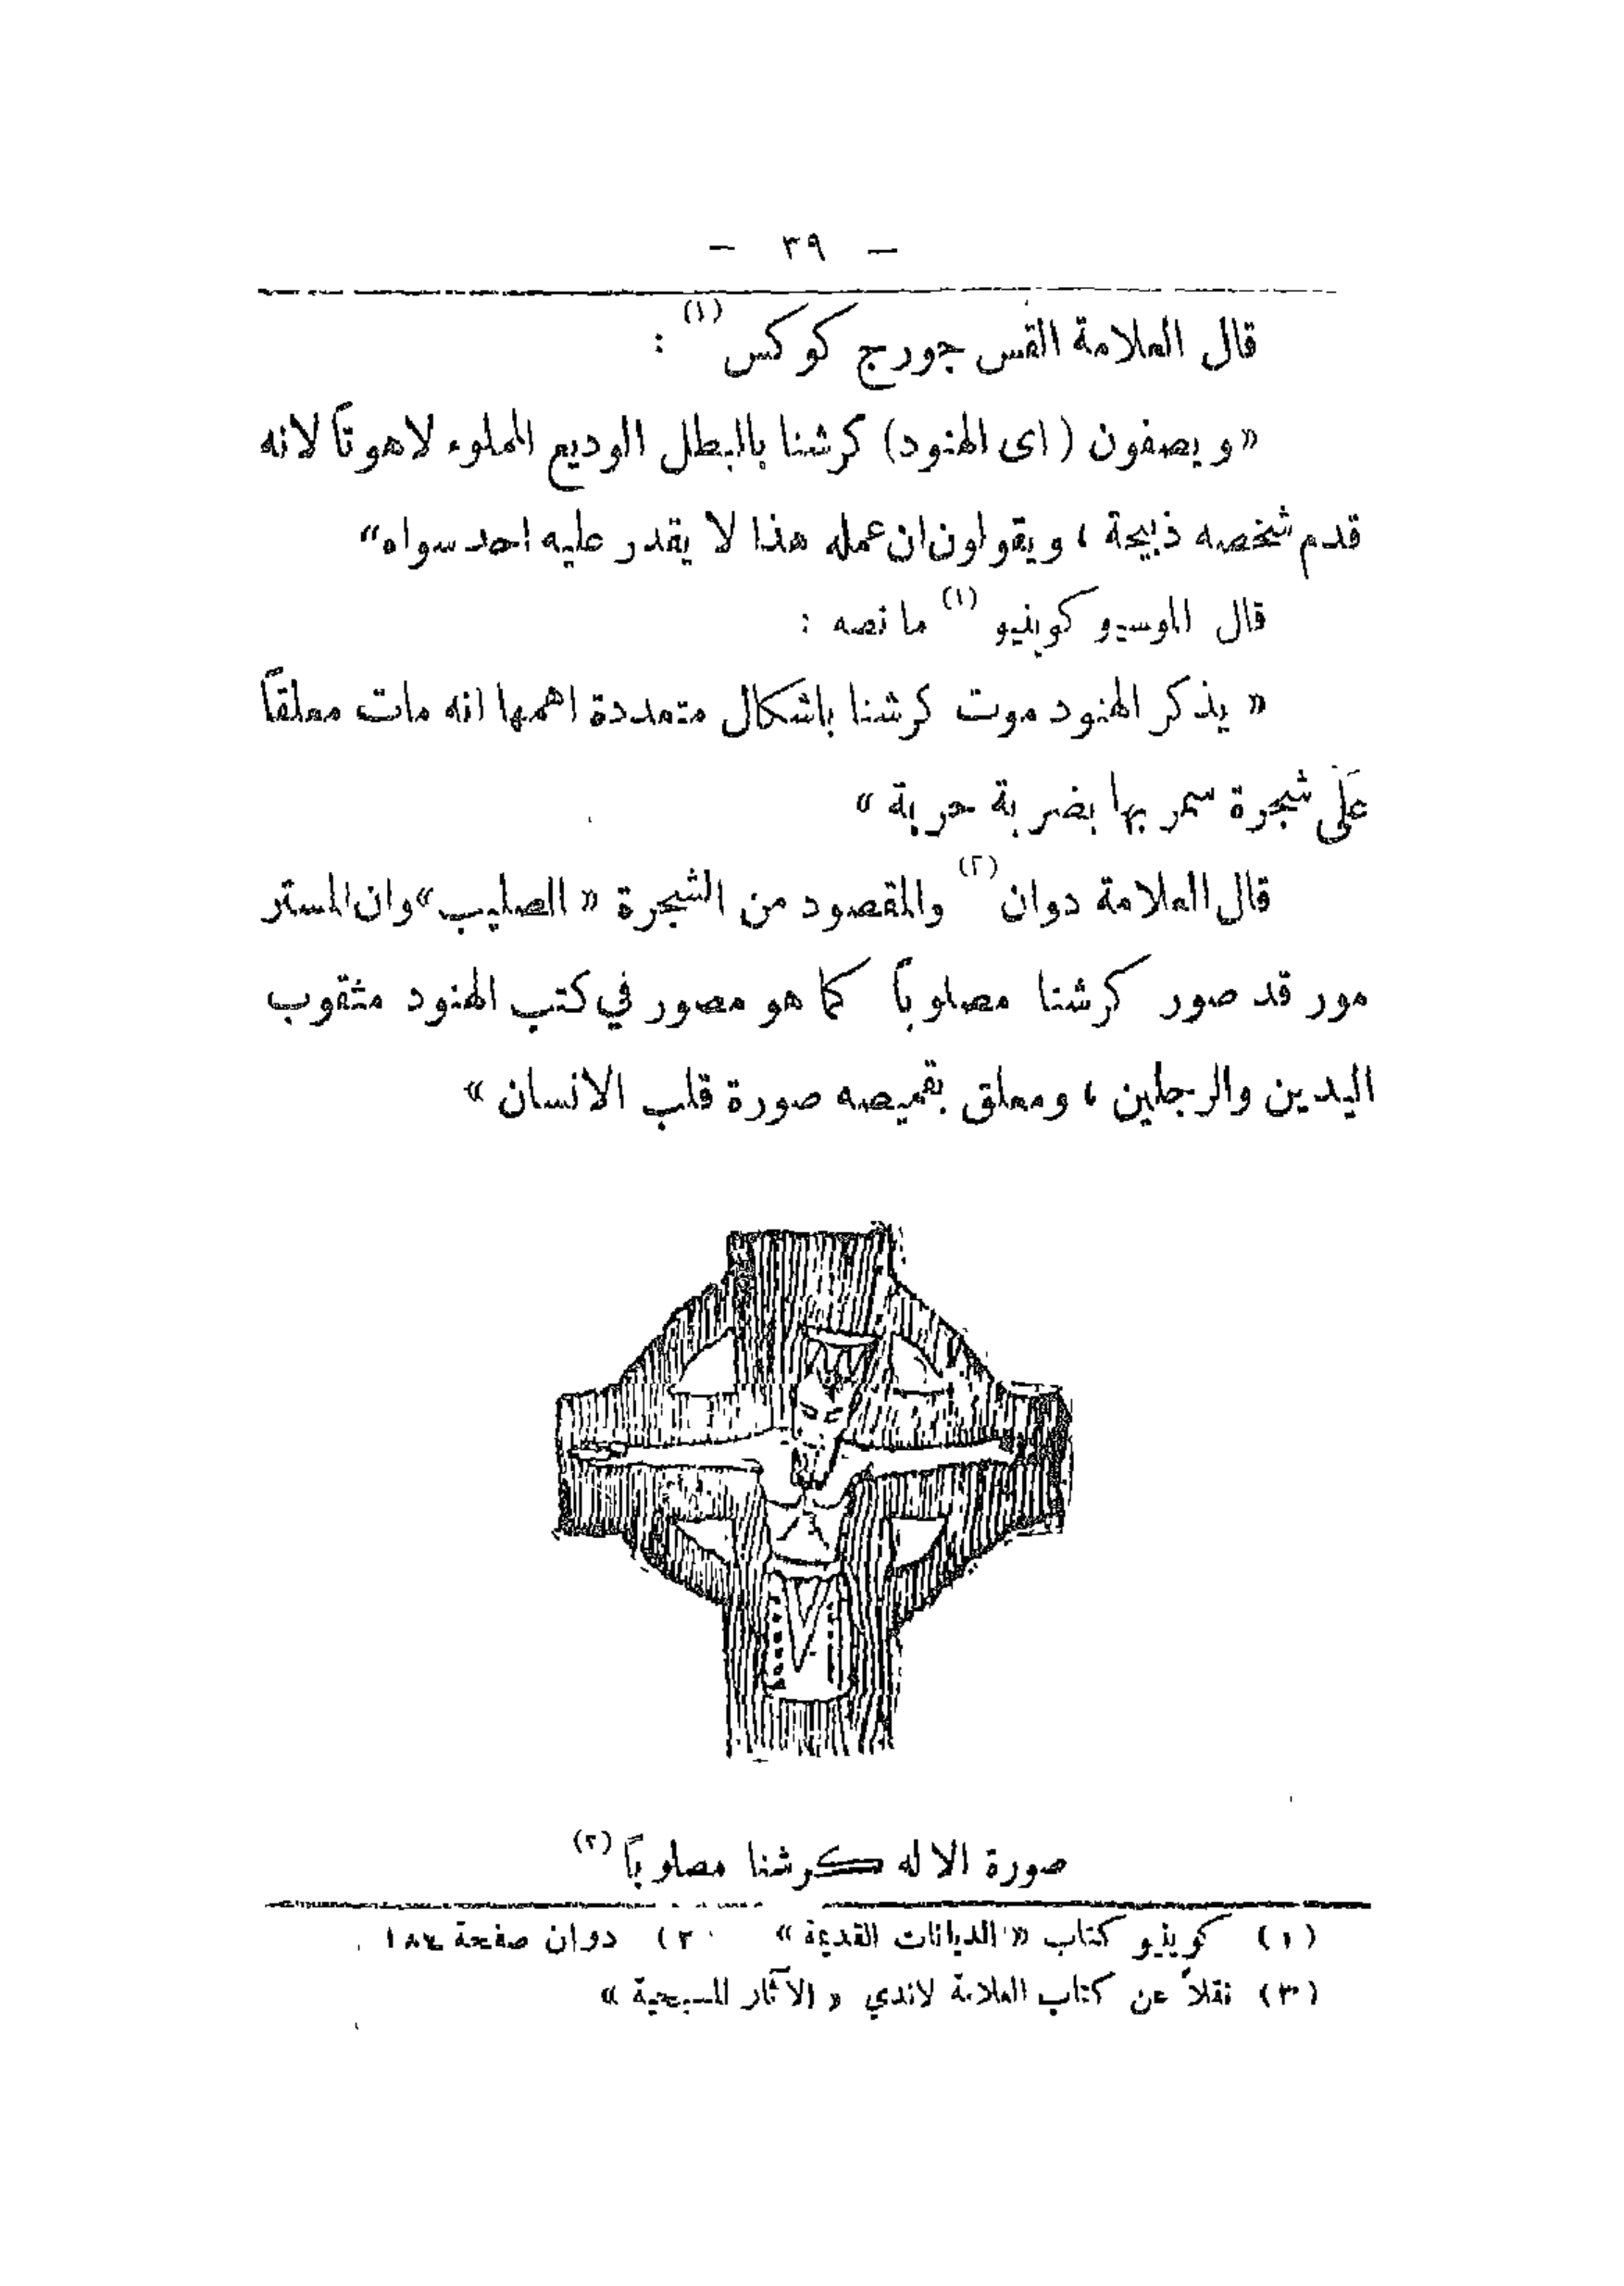 — ٣٩ —
قال العلامة القس جورج كوكس (١) :
« ويصفون (اى الهنود) كرشنا بالبطل الوديع المملوء لاهوتاً لانه
قدم شخصه ذبيحة ، ويقولون ان عمله هذا لا يقدر عليه احد سواه »
قال الموسيو كوينيو (١) ما نصه :
« يذكر الهنود موت كرشنا باشكال متعددة اهمها انه مات معلقاً
عَلَى شجرة سمر بها بضربة حربة »
قال العلامة دوان (٢) والمقصود من الشجرة « الصليب » وان المستر
مور قد صور كرشنا مصلوباً كما هو مصور في كتب الهنود مثقوب
اليدين والرجلين ، ومعلق بقميصه صورة قلب الانسان »
صورة الاله كرشنا مصلوباً (٢)
(١) كوينيو كتاب « الديانات القديمة » (٢) دوان صفحة
(٣) نقلاً عن كتاب العلامة لاندي « الآثار المسيحية »